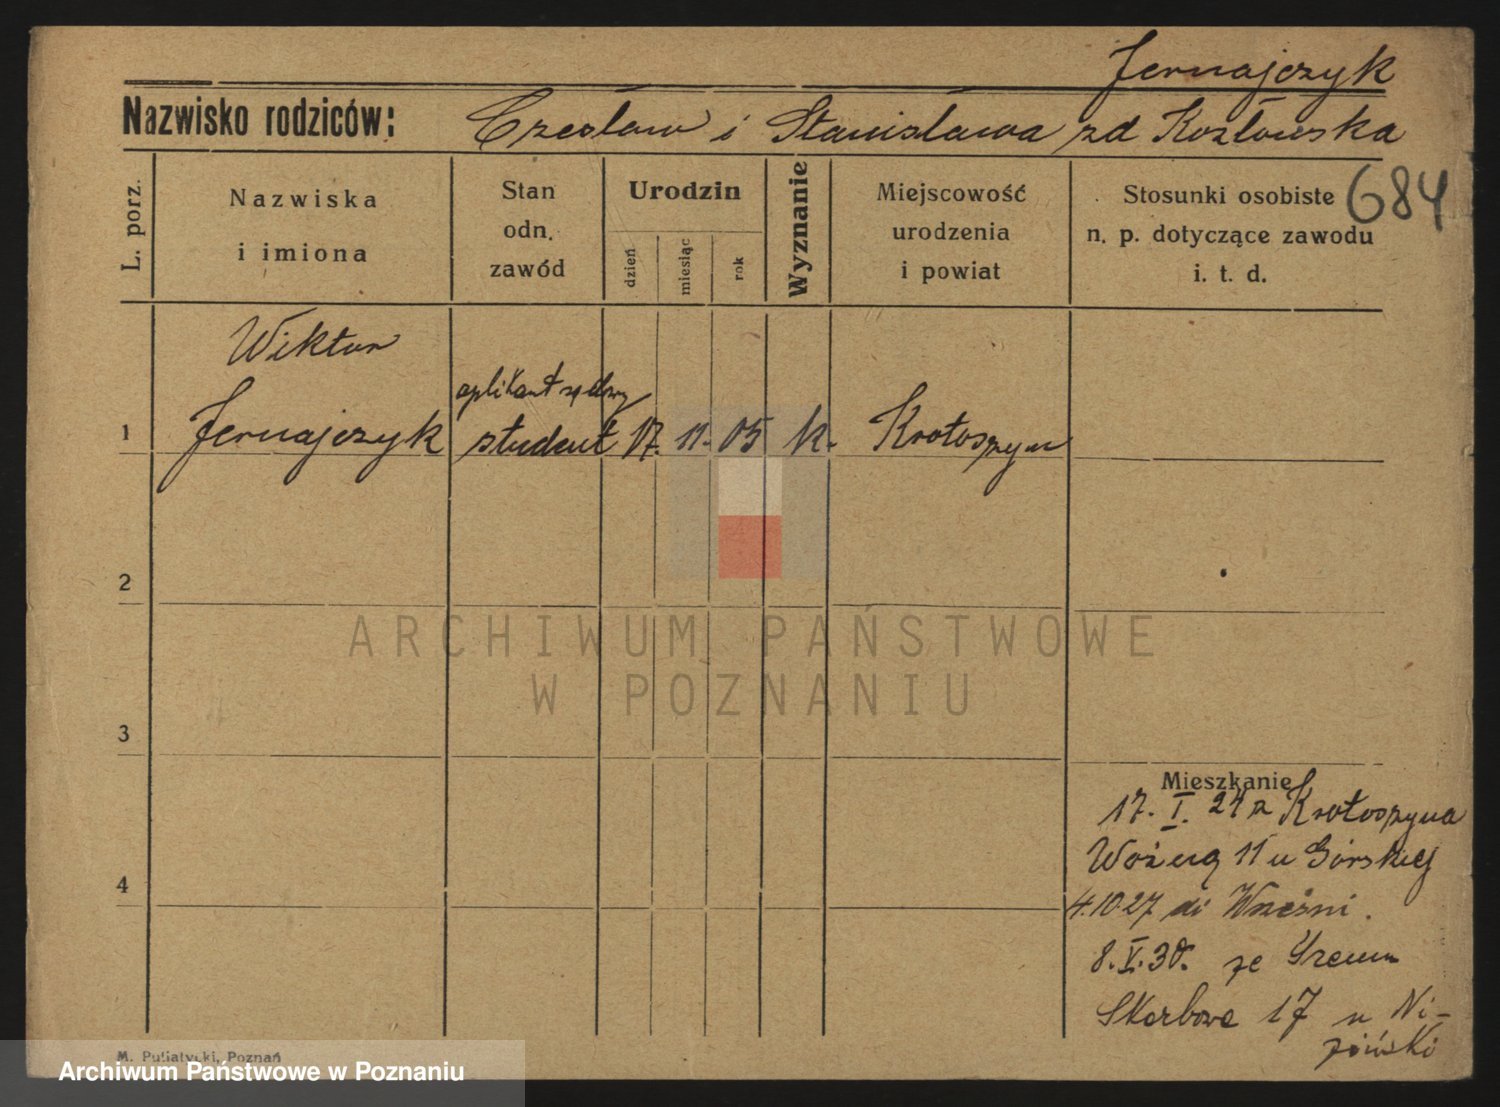 Jernajczyk
Nazwisko rodziców: Czesław i Stanisława zd Kozłowska
L. porz.
Nazwiska
i imiona
Stan
odn.
zawód
Urodzin
dzień
miesiąc
rok
Wyznanie
Miejscowość
urodzenia
i powiat
Stosunki osobiste
n. p. dotyczące zawodu
i. t. d.
684
Wiktor
aplikant sądowy
1 Jernajczyk student 17. 11. 05 k. Krotoszyn
2
ARCHIWUM PAŃSTWOWE
W POZNANIU
3
Mieszkanie
17. I. 27 z Krotoszyna
Woźną 11 u Górskiej
4
4.10.27 do Wrześni.
8. V. 30. ze
Skarbowa 17 u Ni-
ziński
M. Putiatycki, Poznań
Archiwum Państwowe w Poznaniu